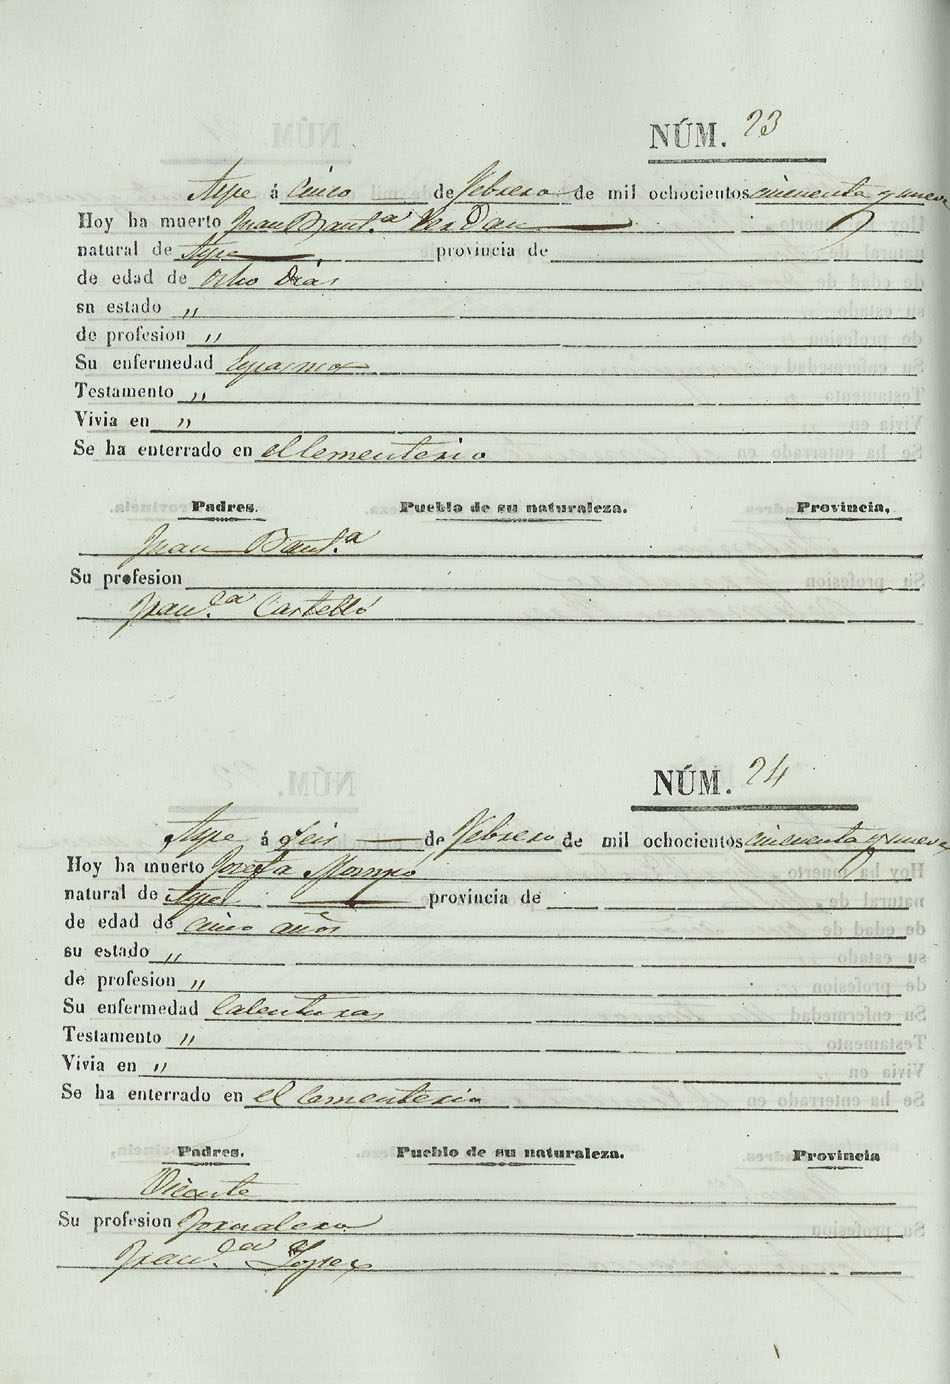 NÚM. 23
Aspe á Cinco de Febrero de mil ochocientos cincuenta y nueve
Hoy ha muerto Juan Baut.a Verdau
natural de Aspe provincia de
de edad de Ocho Dias
sn estado "
de profesion "
Su enfermedad Espasmo
Testamento "
Vivia en "
Se ha enterrado en el Cementerio
Padres. Pueblo de su naturaleza. Provincia,
Juan Baut.a
Su profesion
Fran.ca Castelló
NÚM. 24
Aspe á Seis de Febrero de mil ochocientos cincuenta y nueve
Hoy ha muerto Josefa
natural de Aspe provincia de
de edad de cinco años
su estado "
de profesion "
Su enfermedad Calenturas
Testamento "
Vivia en "
Se ha enterrado en el Cementerio
Padres. Pueblo de su naturaleza. Provincia
Vicente
Su profesion Jornalero
Fran.ca Lopez